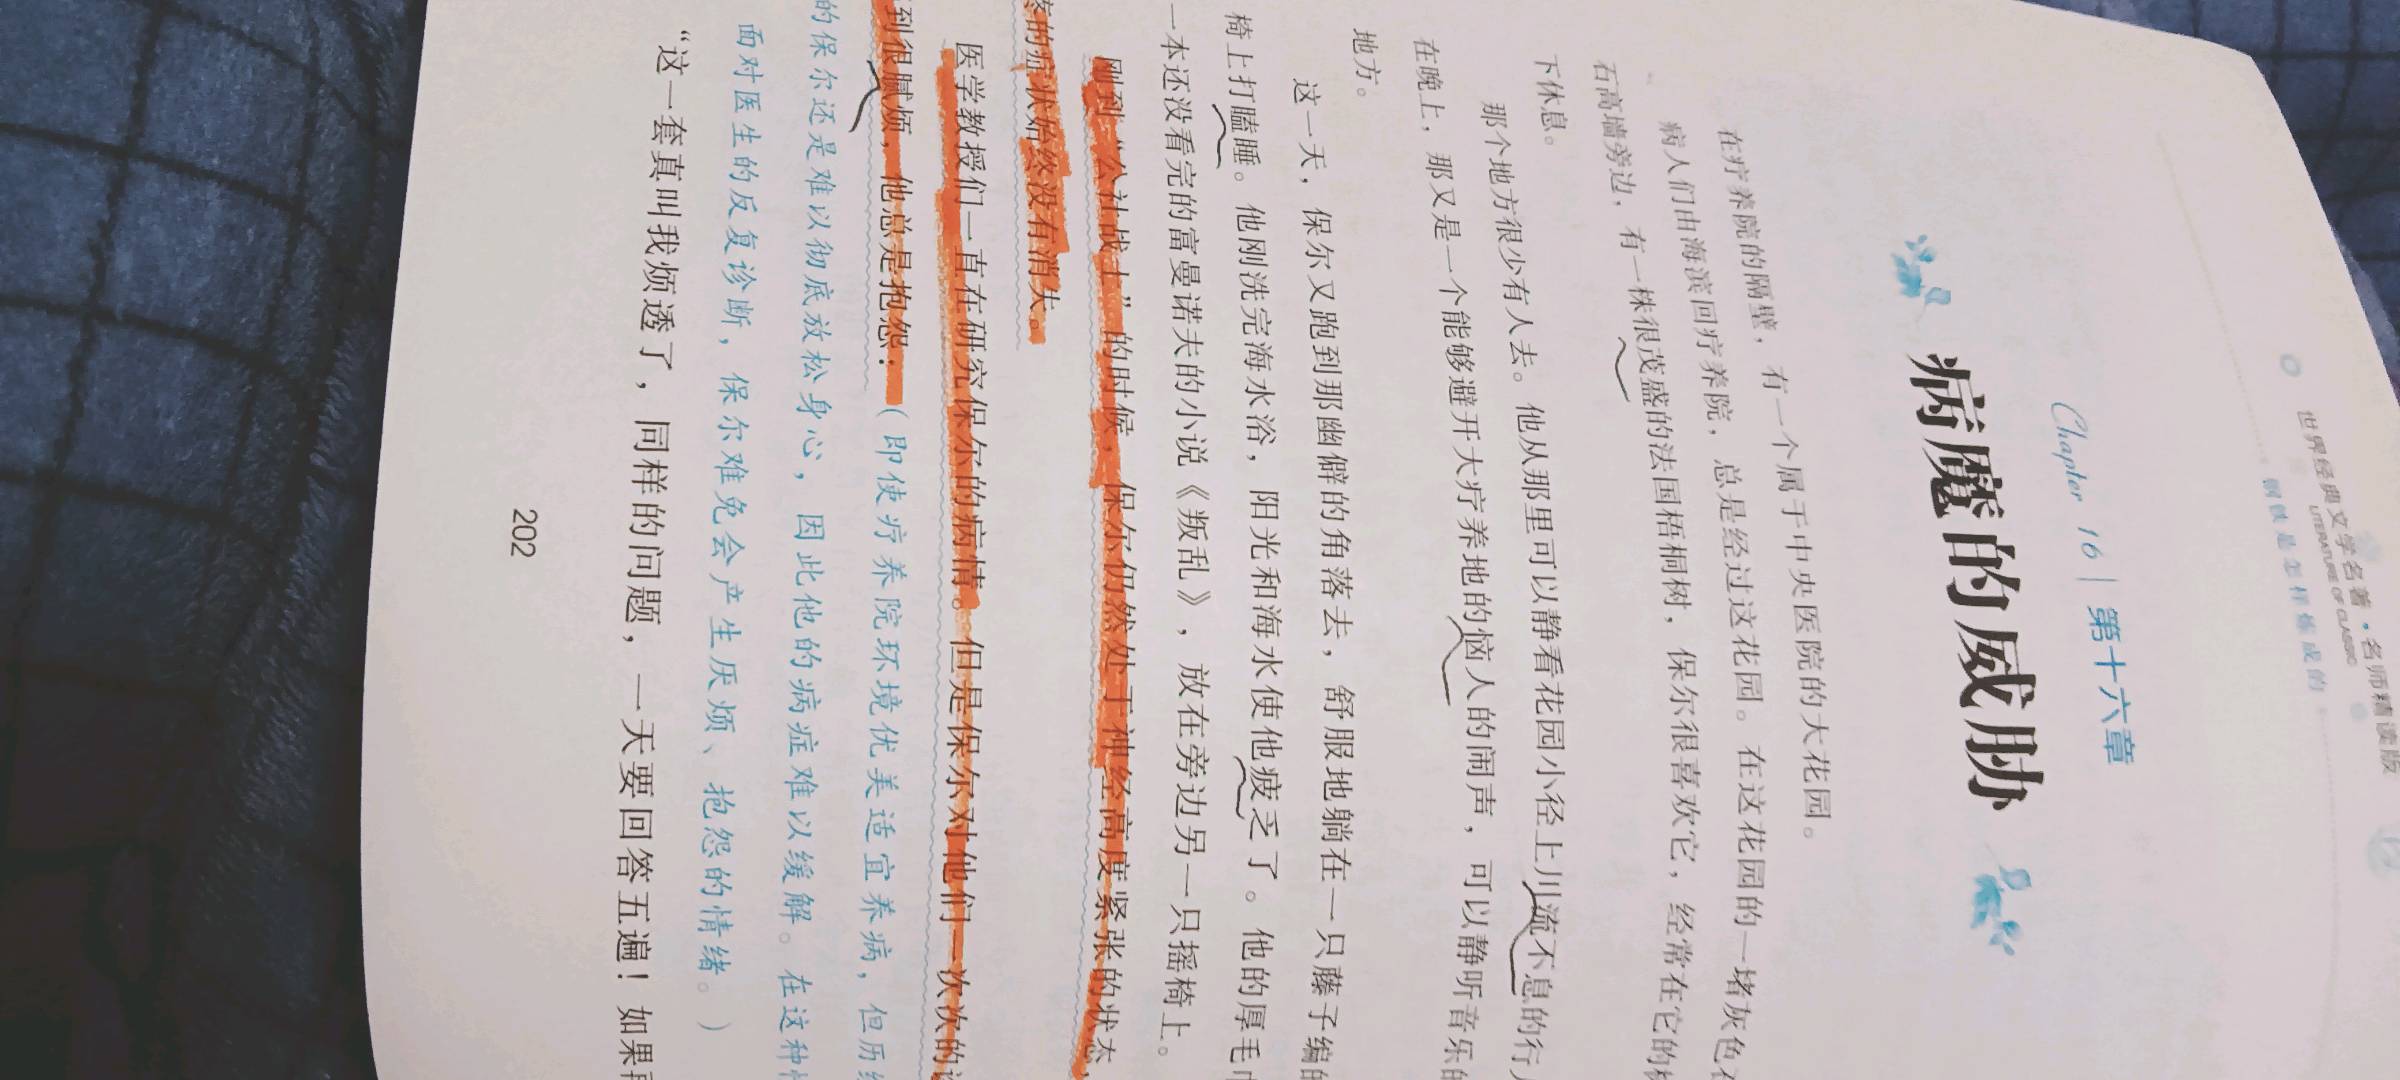 世界经典文学名著·名师精读版
LITERATURE OF CLASSIC
钢铁是怎样炼成的
Chapter 16 | 第十六章
病魔的威胁
在疗养院的隔壁，有一个属于中央医院的大花园。
病人们由海滨回疗养院，总是经过这花园。在这花园的一堵灰色
石高墙旁边，有一株很茂盛的法国梧桐树，保尔很喜欢它，经常在它的
下休息。
那个地方很少有人去。他从那里可以静看花园小径上川流不息的行
在晚上，那又是一个能够避开大疗养地的恼人的闹声，可以静听音乐的
地方。
这一天，保尔又跑到那幽僻的角落去，舒服地躺在一只藤子编的
椅上打瞌睡。他刚洗完海水浴，阳光和海水使他疲乏了。他的厚毛巾
一本还没看完的富曼诺夫的小说《叛乱》，放在旁边另一只摇椅上。
刚到“公社战士”的时候，保尔仍然处于神经高度紧张的状态，
疼的症状始终没有消失。
医学教授们一直在研究保尔的病情。但是保尔对他们一次次的
到很腻烦，他总是抱怨：（即使疗养院环境优美适宜养病，但历经
的保尔还是难以彻底放松身心，因此他的病症难以缓解。在这种
面对医生的反复诊断，保尔难免会产生厌烦、抱怨的情绪。）
“这一套真叫我烦透了，同样的问题，一天要回答五遍！如果
202